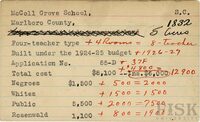 McColl Grove School, S.C.
Marlboro County, 1832
5 acres
Four-teacher type + 4 Rooms = 8-Teacher
Built under the 1924-25 budget + 1926-27
Application No. 58-D + 37F
Total cost $8,100 + 4800 = 12900
Negroes $1,500 + 500 = 2000
Whites + 1500 = 1500
Public 5,500 + 2000 = 7500
Rosenwald 1,100 + 800 = 1900
FISK